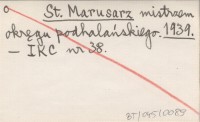 o St. Marusarz mistrzem
okręgu podhalańskiego. 1939.
— IKC nr 38.